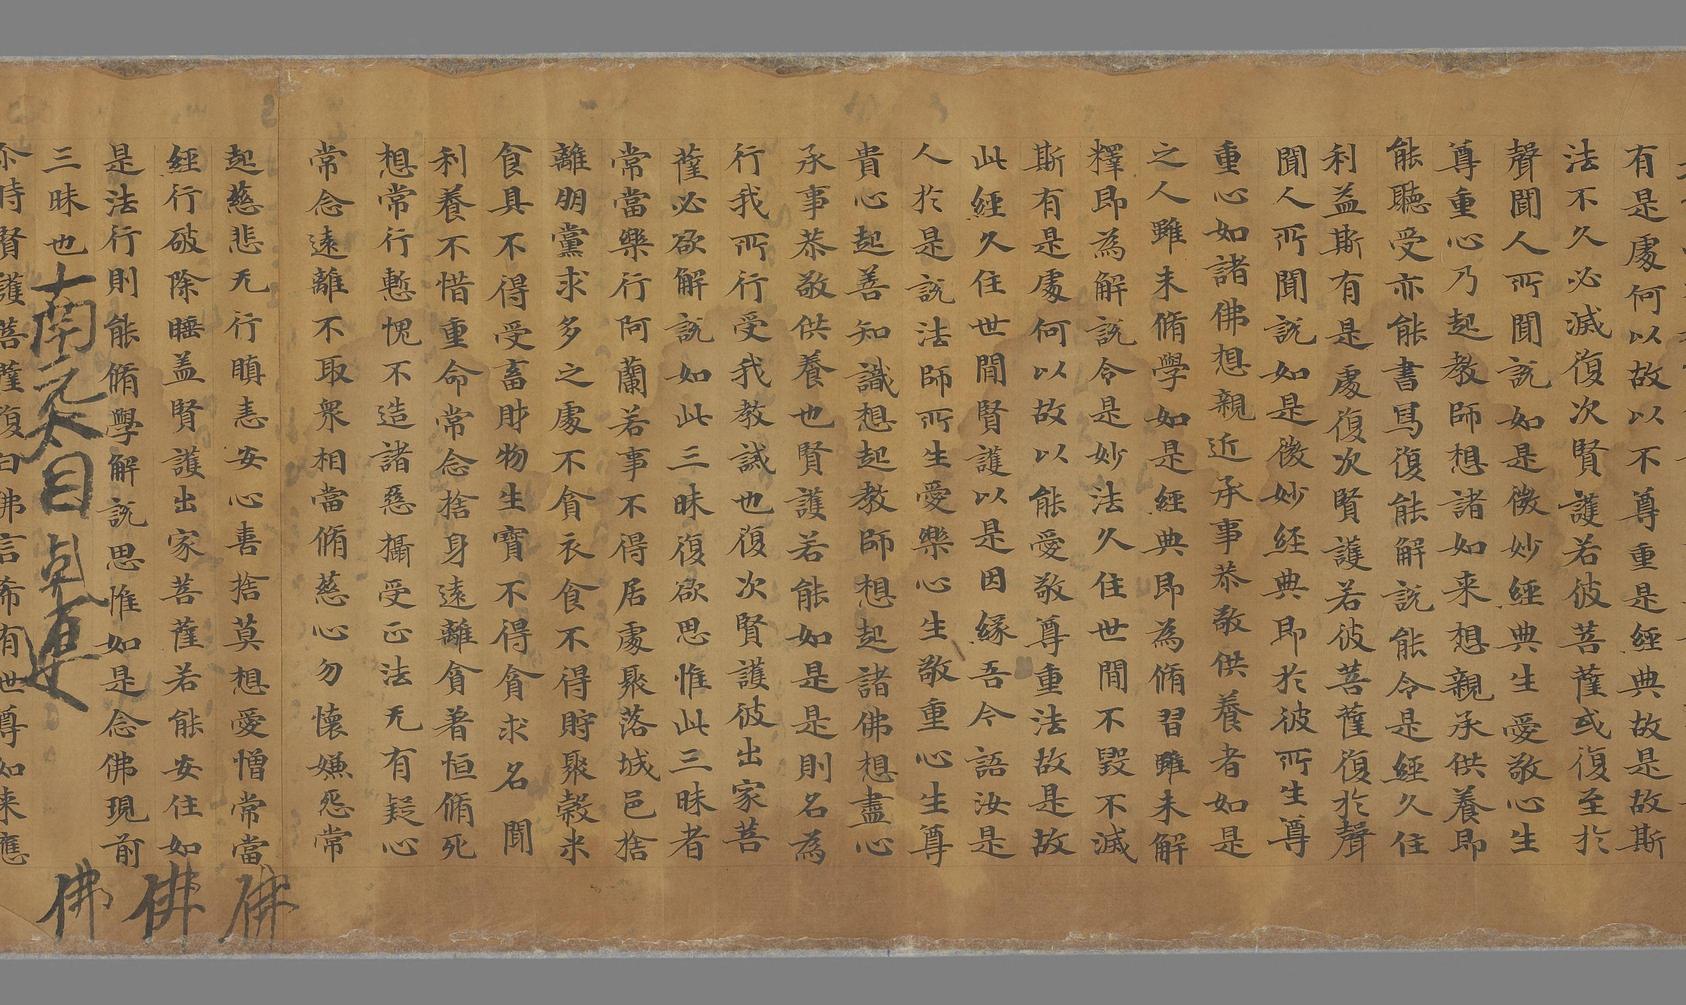 有是處何以故以不尊重是經典故是故斯
法不久必滅復次賢護若彼菩薩或復至於
聲聞人所聞說如是微妙經典生愛敬心生
尊重心乃起教師想諸如来想親承供養即
能聽受亦能書寫復能解說能令是經久住
利益斯有是處復次賢護若彼菩薩復於聲
聞人所聞說如是微妙経典即於彼所生尊
重心如諸佛想親近承事恭敬供養者如是
之人雖未脩學如是經典即為脩習雖未解
釋即為解說令是妙法久住世間不毀不滅
斯有是處何以故以能愛敬尊重法故是故
此經久住世間賢護以是因緣吾今語汝是
人於是說法師所生愛樂心生敬重心生尊
貴心起善知識想起教師想起諸佛想盡心
承事恭敬供養也賢護若能如是是則名為
行我所行受我教誡也復次賢護彼出家菩
薩必欲解說如此三昧復欲思惟此三昧者
常當樂行阿蘭若事不得居處聚落城邑捨
離朋黨求多之處不貪衣食不得貯聚穀米
食具不得受畜財物生寶不得貪求名聞
利養不惜重命常念捨身遠離貪著恒脩死
想常行慙愧不造諸惡攝受正法无有疑心
常念遠離不取衆相當脩慈心勿懷嫌惡常
起慈悲无行瞋恚安心喜捨莫想愛憎常當
經行破除睡盖賢護出家菩薩若能安住如
是法行則能脩學解說思惟如是念佛現前
三昧也
尒時賢護菩薩復白佛言希有世尊如来應
佛
佛
佛